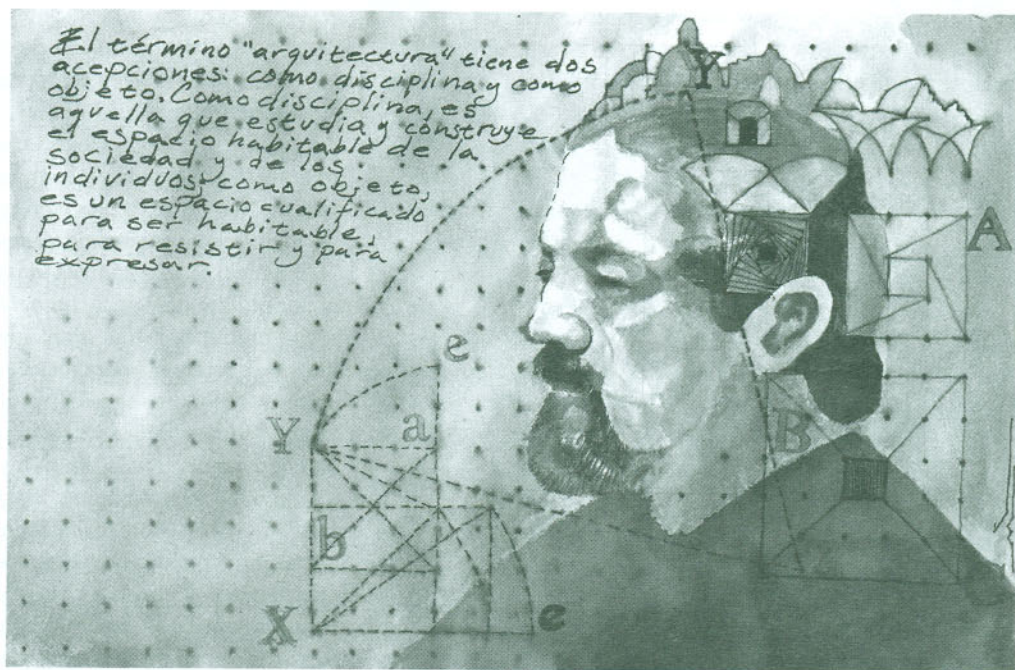 El término "arquitectura" tiene dos
acepciones: como disciplina y como
objeto. Como disciplina, es
aquella que estudia y construye
el espacio habitable de la
sociedad y de los
individuos; como objeto,
es un espacio cualificado
para ser habitable,
para resistir y para
expresar.
Y
A
e
Y
a
B
b
X
e